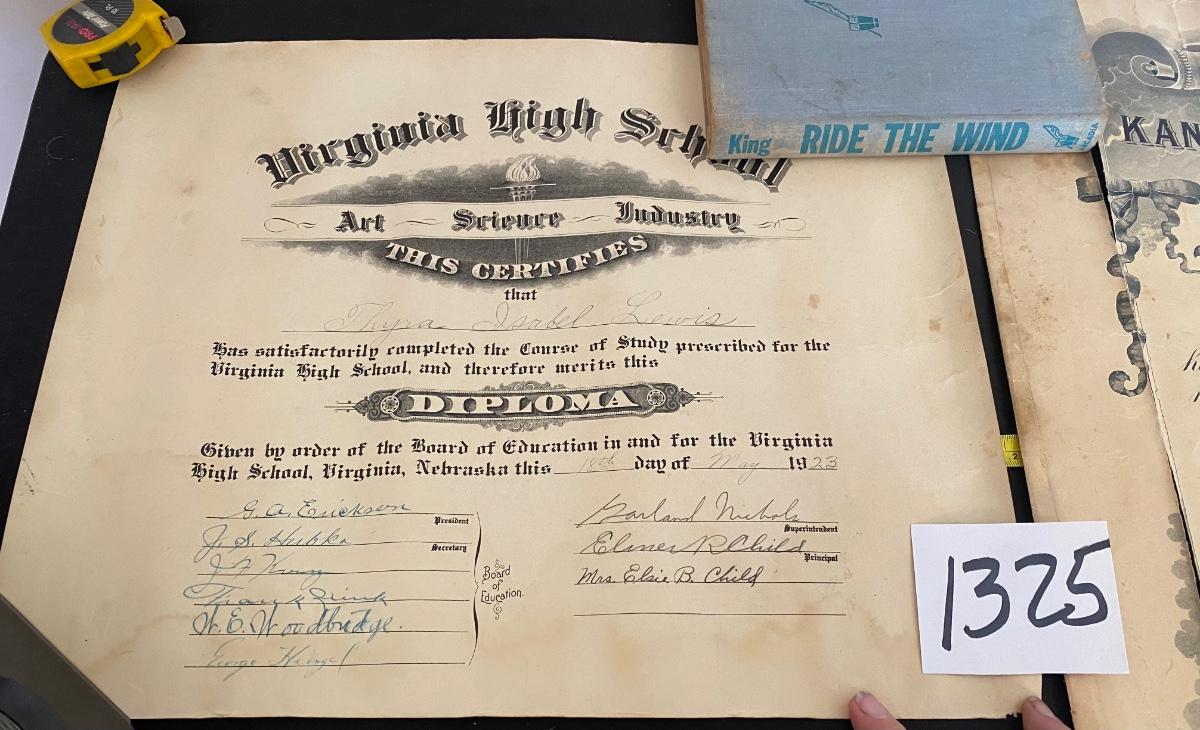 PRO
King RIDE THE WIND
KAN
Virginia High School
Art Science Industry
THIS CERTIFIES
that
Thyra Isabel Lewis
Has satisfactorily completed the Course of Study prescribed for the
Virginia High School, and therefore merits this
DIPLOMA
Given by order of the Board of Education in and for the Virginia
High School, Virginia, Nebraska this 18th day of May 1923
G. A. Erickson
President
J. S. Hubka
Secretary
Frank
W. E. Woodbridge.
George
Board
of
Education.
Garland Nichols
Superintendent
Elmer R Child
Principal
Mrs. Elsie B. Child
2
1325